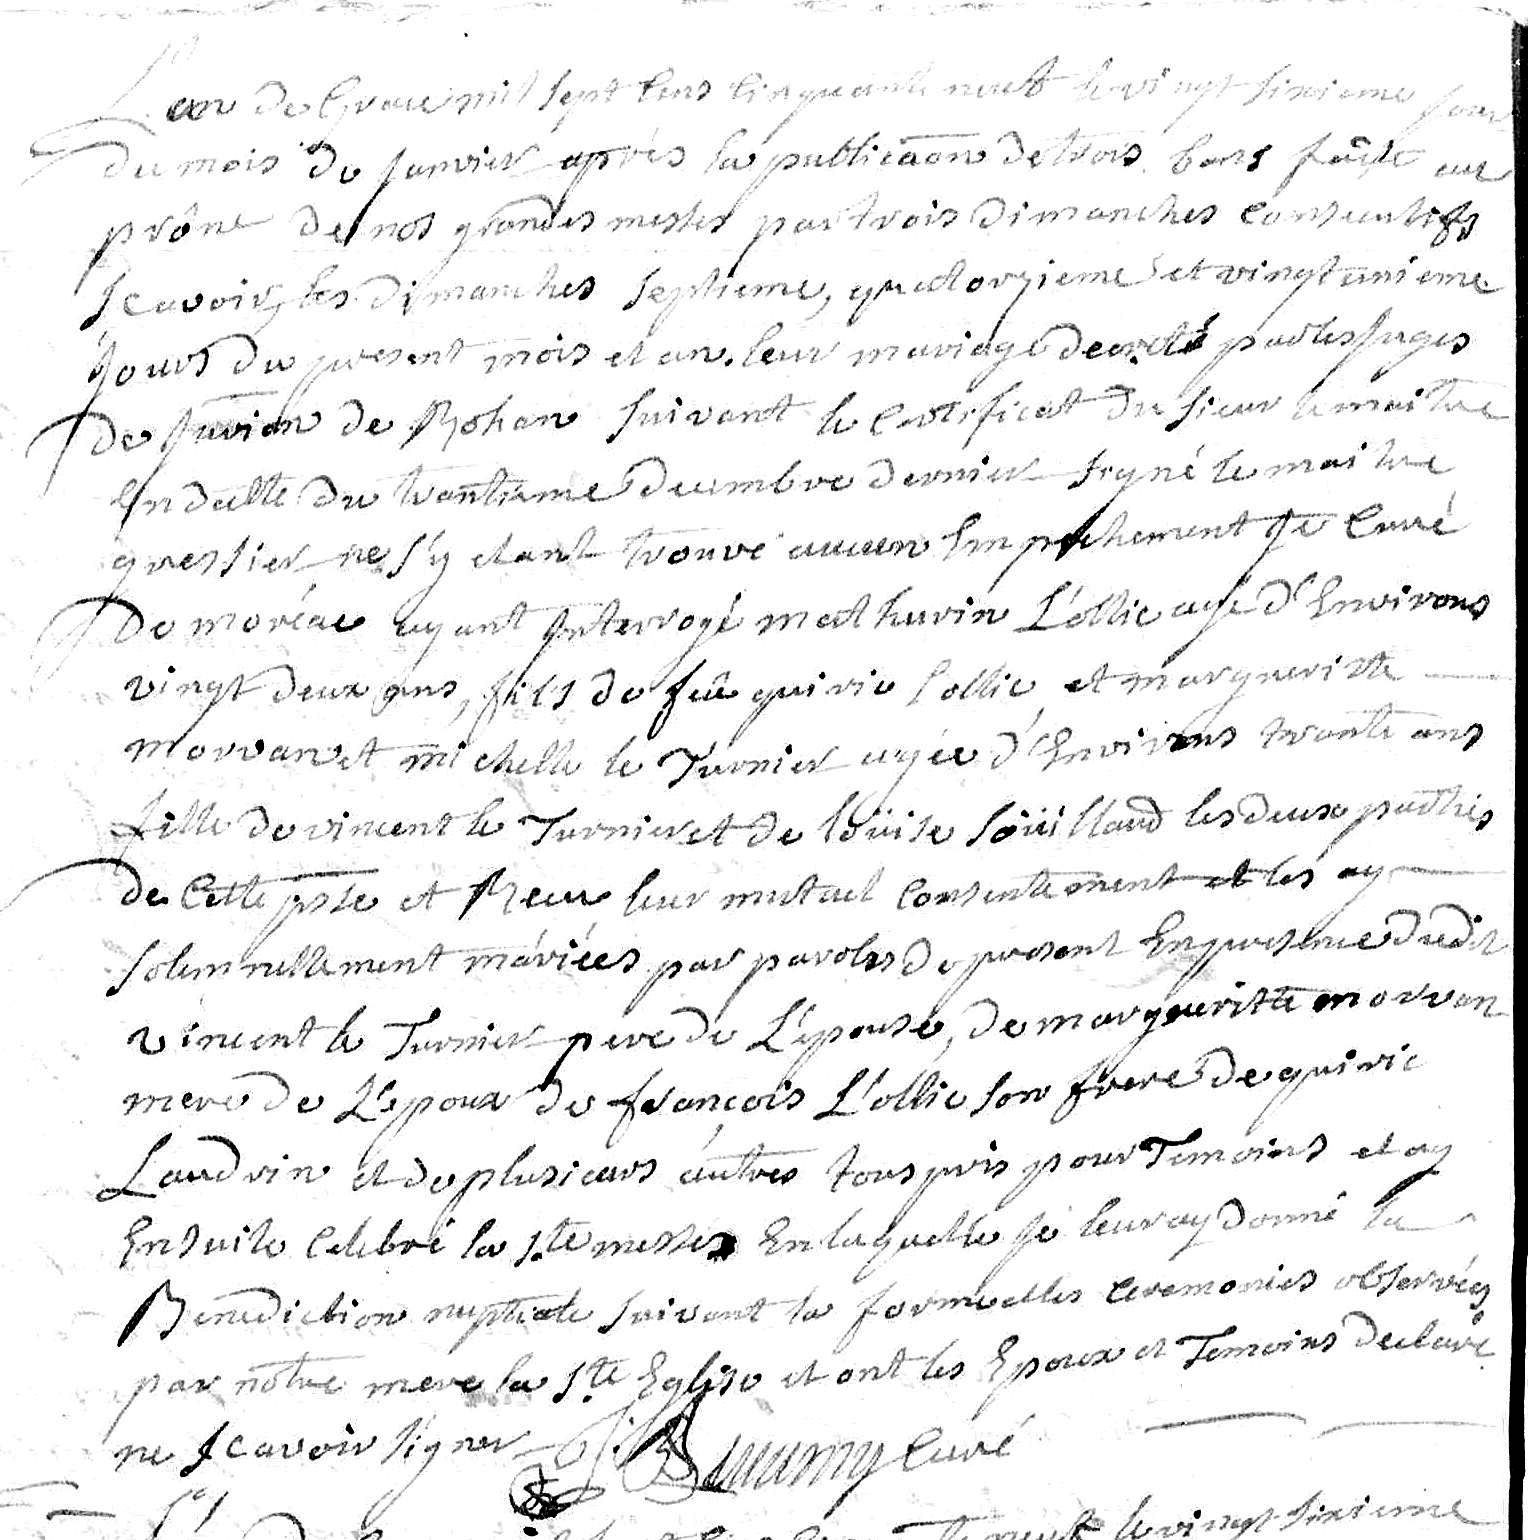 L'an de Grace mil sept Cens Cinquante neuf le vingt sixieme jour
du mois de Janvier après la publicãon de trois bans faite au
prône de nos grandes messes par trois dimanches consecutifs
scavoir les dimanches septieme, quatorzieme et vingt unieme
jours du present mois et an. leur mariage decreté par les juges
de de Rohan suivant le Certificat du sieur le maitre
En datte du trantieme decembre dernier signé le maitre
greffier ne s'y etant trouvé aucun Empechement je Curé
de moréac ayant Interrogé mathurin L'ollic agé d'Environs
vingt deux ans, fils de feû quiric Lollic et margueritte
morvan et michelle le Turnier agée d'Environs trante ans
fille de vincent le Turnier et de loüise les deux parties
de Cette psse et Reçu leur mutuel Consentement et les ay
solemnellement máriées par paroles de present En presence dudit
vincent le Turnier pere de L'épouse, de margueritte morvan
mere de L'epoux de françois L'ollic son frere de quiric
Laudrin et de plusieurs áutres tous pris pour Temoins et ay
Ensuite Celebré la s.te messe En laquelle je leur ay donné la
Benediction nuptiale suivant la forme et les ceremonies observées
par nôtre mere la s.te Eglise et ont les Epoux et Temoins declaré
ne scavoir signer Curé
le vingt sixieme